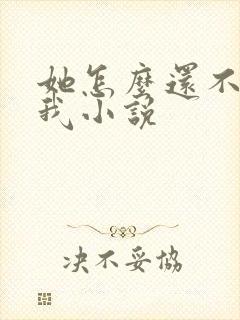 她怎麼還不
我小說
决不妥協